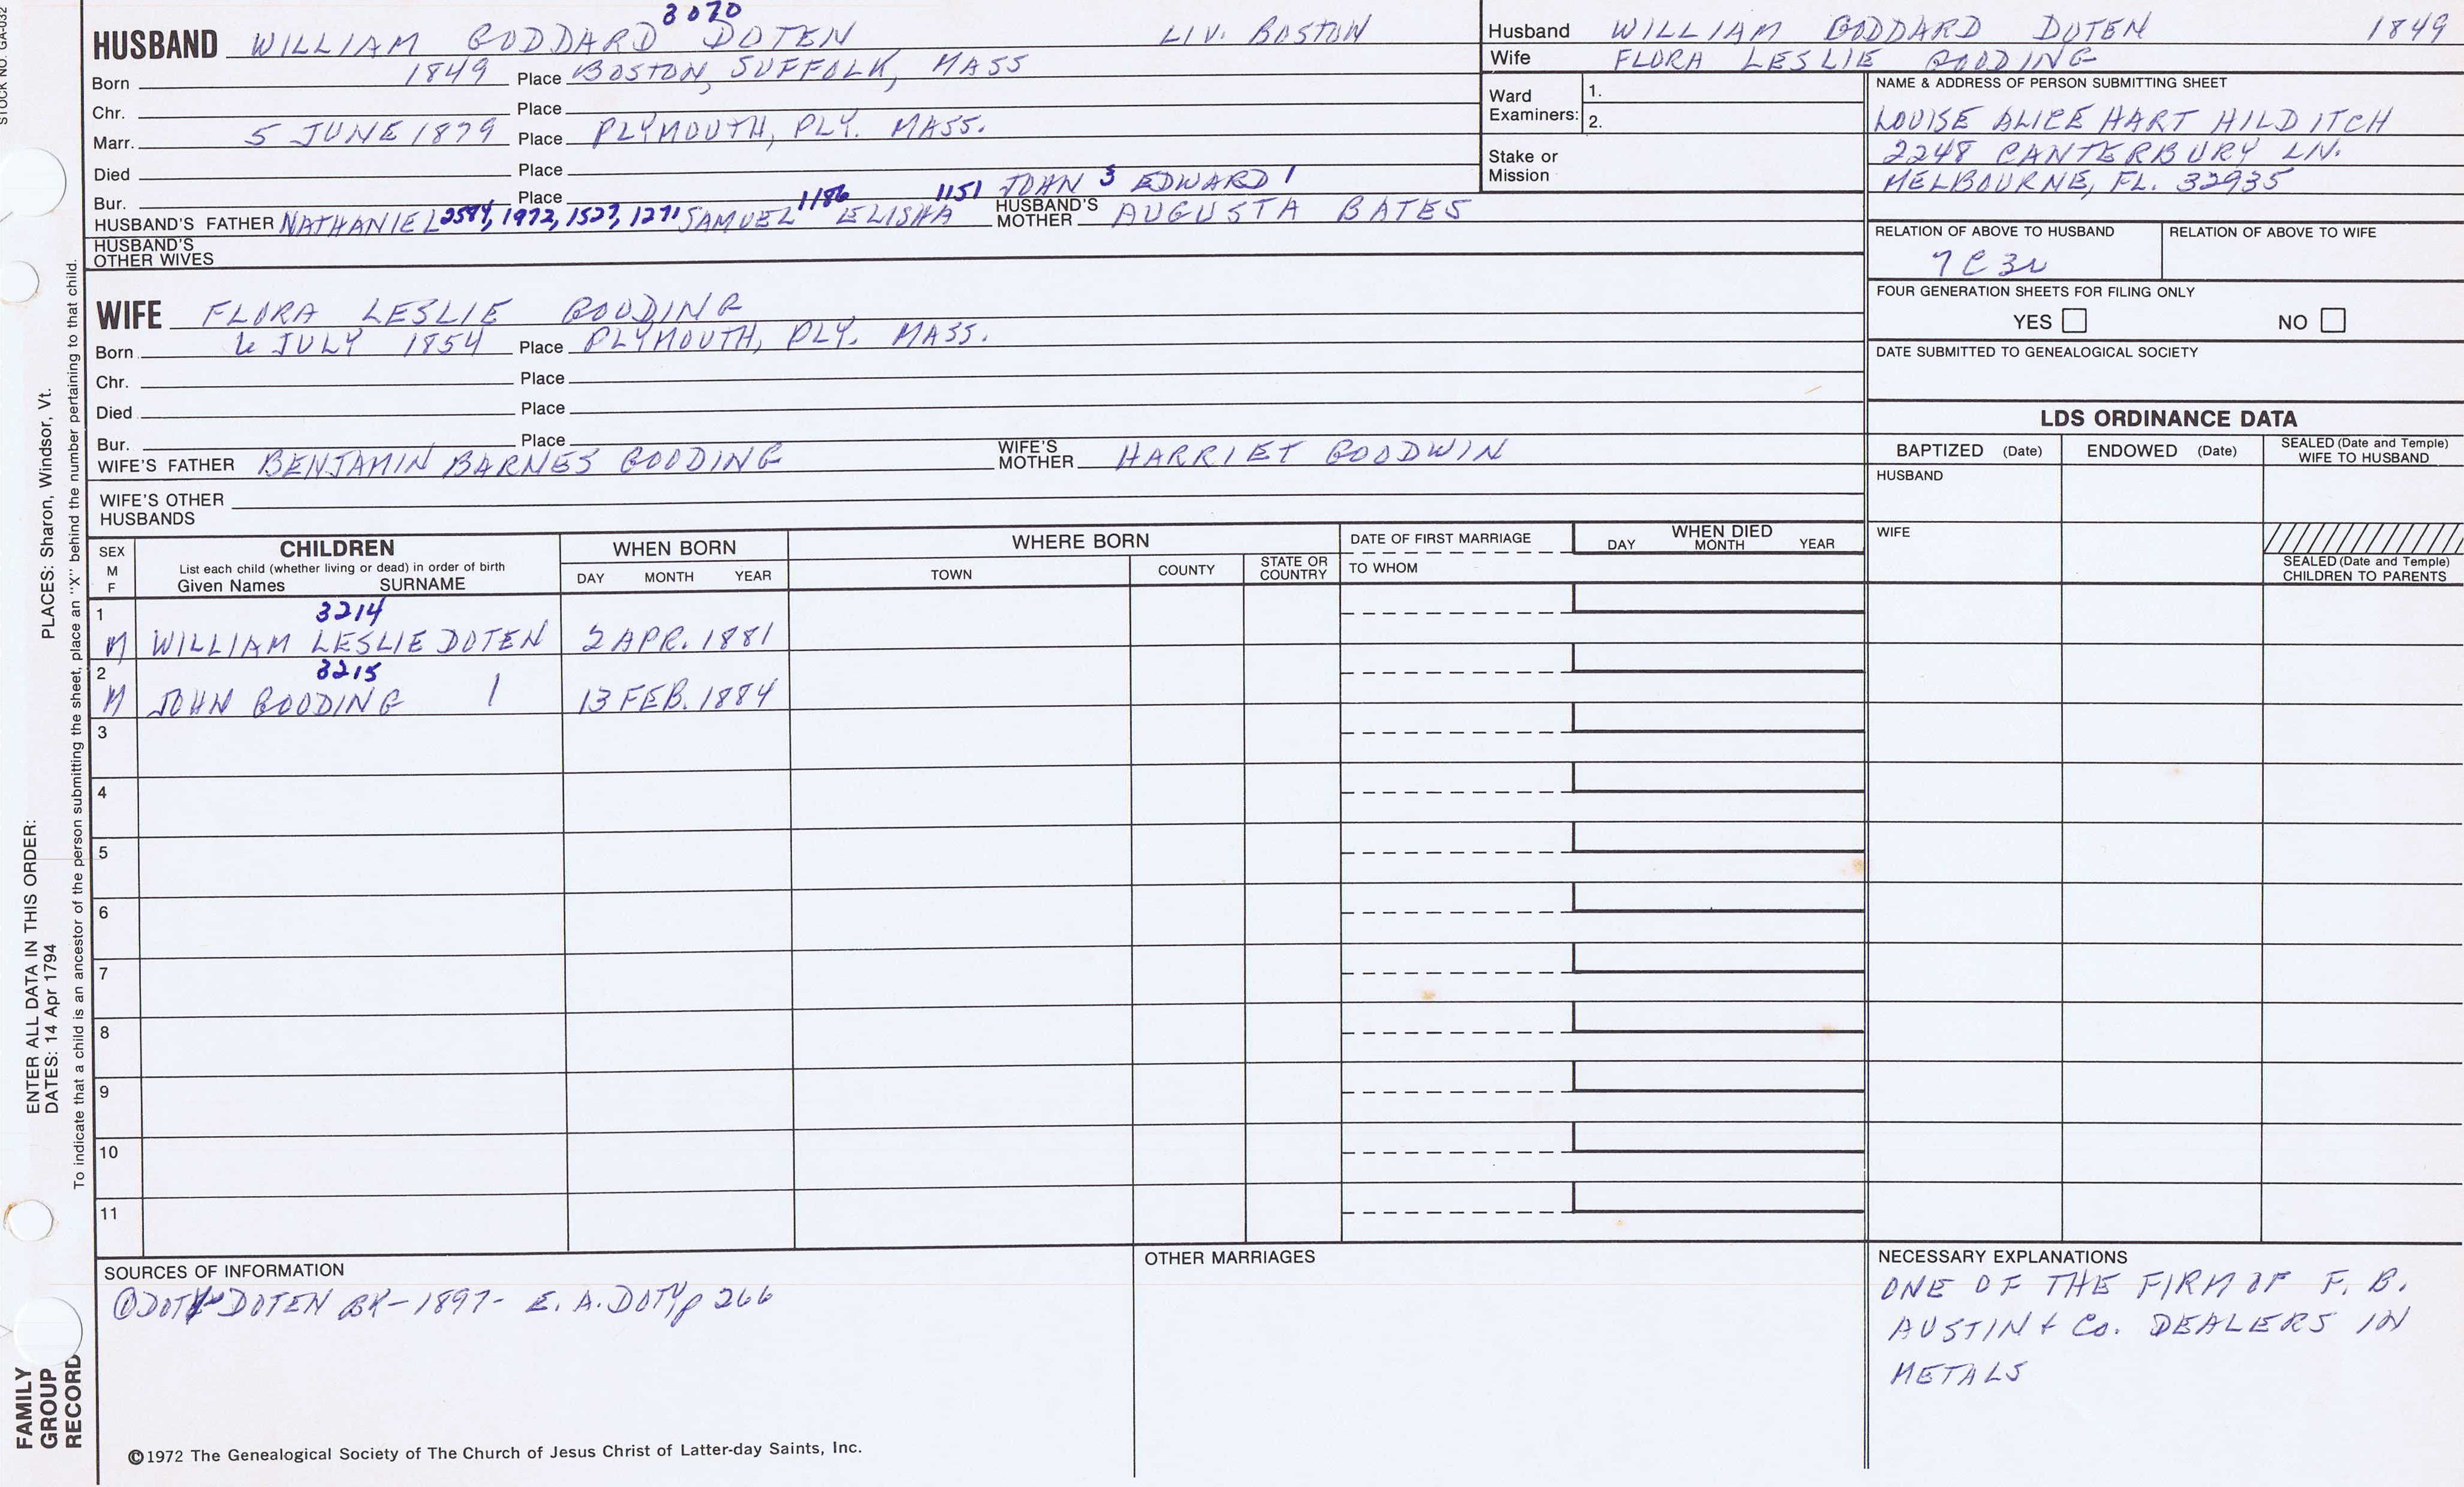 STOCK NO. GA-032
3070
HUSBAND WILLIAM GODDARD DOTEN LIV. BOSTON
Born 1849 Place BOSTON, SUFFOLK, MASS
Chr. Place
Marr. 5 JUNE 1879 Place PLYMOUTH, PLY. MASS.
Died Place
Bur. Place 1186 1151 JOHN 3 EDWARD 1
HUSBAND'S FATHER NATHANIEL 2594, 1972, 1527, 1271 SAMUEL ELISHA HUSBAND'S MOTHER AUGUSTA BATES
HUSBAND'S OTHER WIVES
WIFE FLORA LESLIE GOODING
Born 6 JULY 1854 Place PLYMOUTH, PLY. MASS.
Chr. Place
Died Place
Bur. Place
WIFE'S FATHER BENJAMIN BARNES GOODING WIFE'S MOTHER HARRIET GOODWIN
WIFE'S OTHER HUSBANDS
Husband WILLIAM GODDARD DOTEN 1849
Wife FLORA LESLIE GOODING
Ward Examiners: 1.
2.
Stake or Mission
NAME & ADDRESS OF PERSON SUBMITTING SHEET
LOUISE ALICE HART HILDITCH
2248 CANTERBURY LN.
MELBOURNE, FL. 32935
RELATION OF ABOVE TO HUSBAND RELATION OF ABOVE TO WIFE
7C3R
FOUR GENERATION SHEETS FOR FILING ONLY
YES NO
DATE SUBMITTED TO GENEALOGICAL SOCIETY
LDS ORDINANCE DATA
BAPTIZED (Date) ENDOWED (Date) SEALED (Date and Temple) WIFE TO HUSBAND
HUSBAND
WIFE
SEALED (Date and Temple) CHILDREN TO PARENTS
SEX M F
CHILDREN
List each child (whether living or dead) in order of birth
Given Names SURNAME
WHEN BORN
DAY MONTH YEAR
WHERE BORN
TOWN COUNTY STATE OR COUNTRY
DATE OF FIRST MARRIAGE
TO WHOM
WHEN DIED
DAY MONTH YEAR
1 3214
M WILLIAM LESLIE DOTEN 2 APR. 1881
2 3215
M JOHN GOODING 1 13 FEB. 1884
3
4
5
6
7
8
9
10
11
SOURCES OF INFORMATION
① DOTY-DOTEN BK-1897- E. A. DOTY p 266
OTHER MARRIAGES
NECESSARY EXPLANATIONS
ONE OF THE FIRM OF F. B.
AUSTIN + Co. DEALERS IN
METALS
©1972 The Genealogical Society of The Church of Jesus Christ of Latter-day Saints, Inc.
ENTER ALL DATA IN THIS ORDER:
DATES: 14 Apr 1794 PLACES: Sharon, Windsor, Vt.
To indicate that a child is an ancestor of the person submitting the sheet, place an "X" behind the number pertaining to that child.
FAMILY
GROUP
RECORD